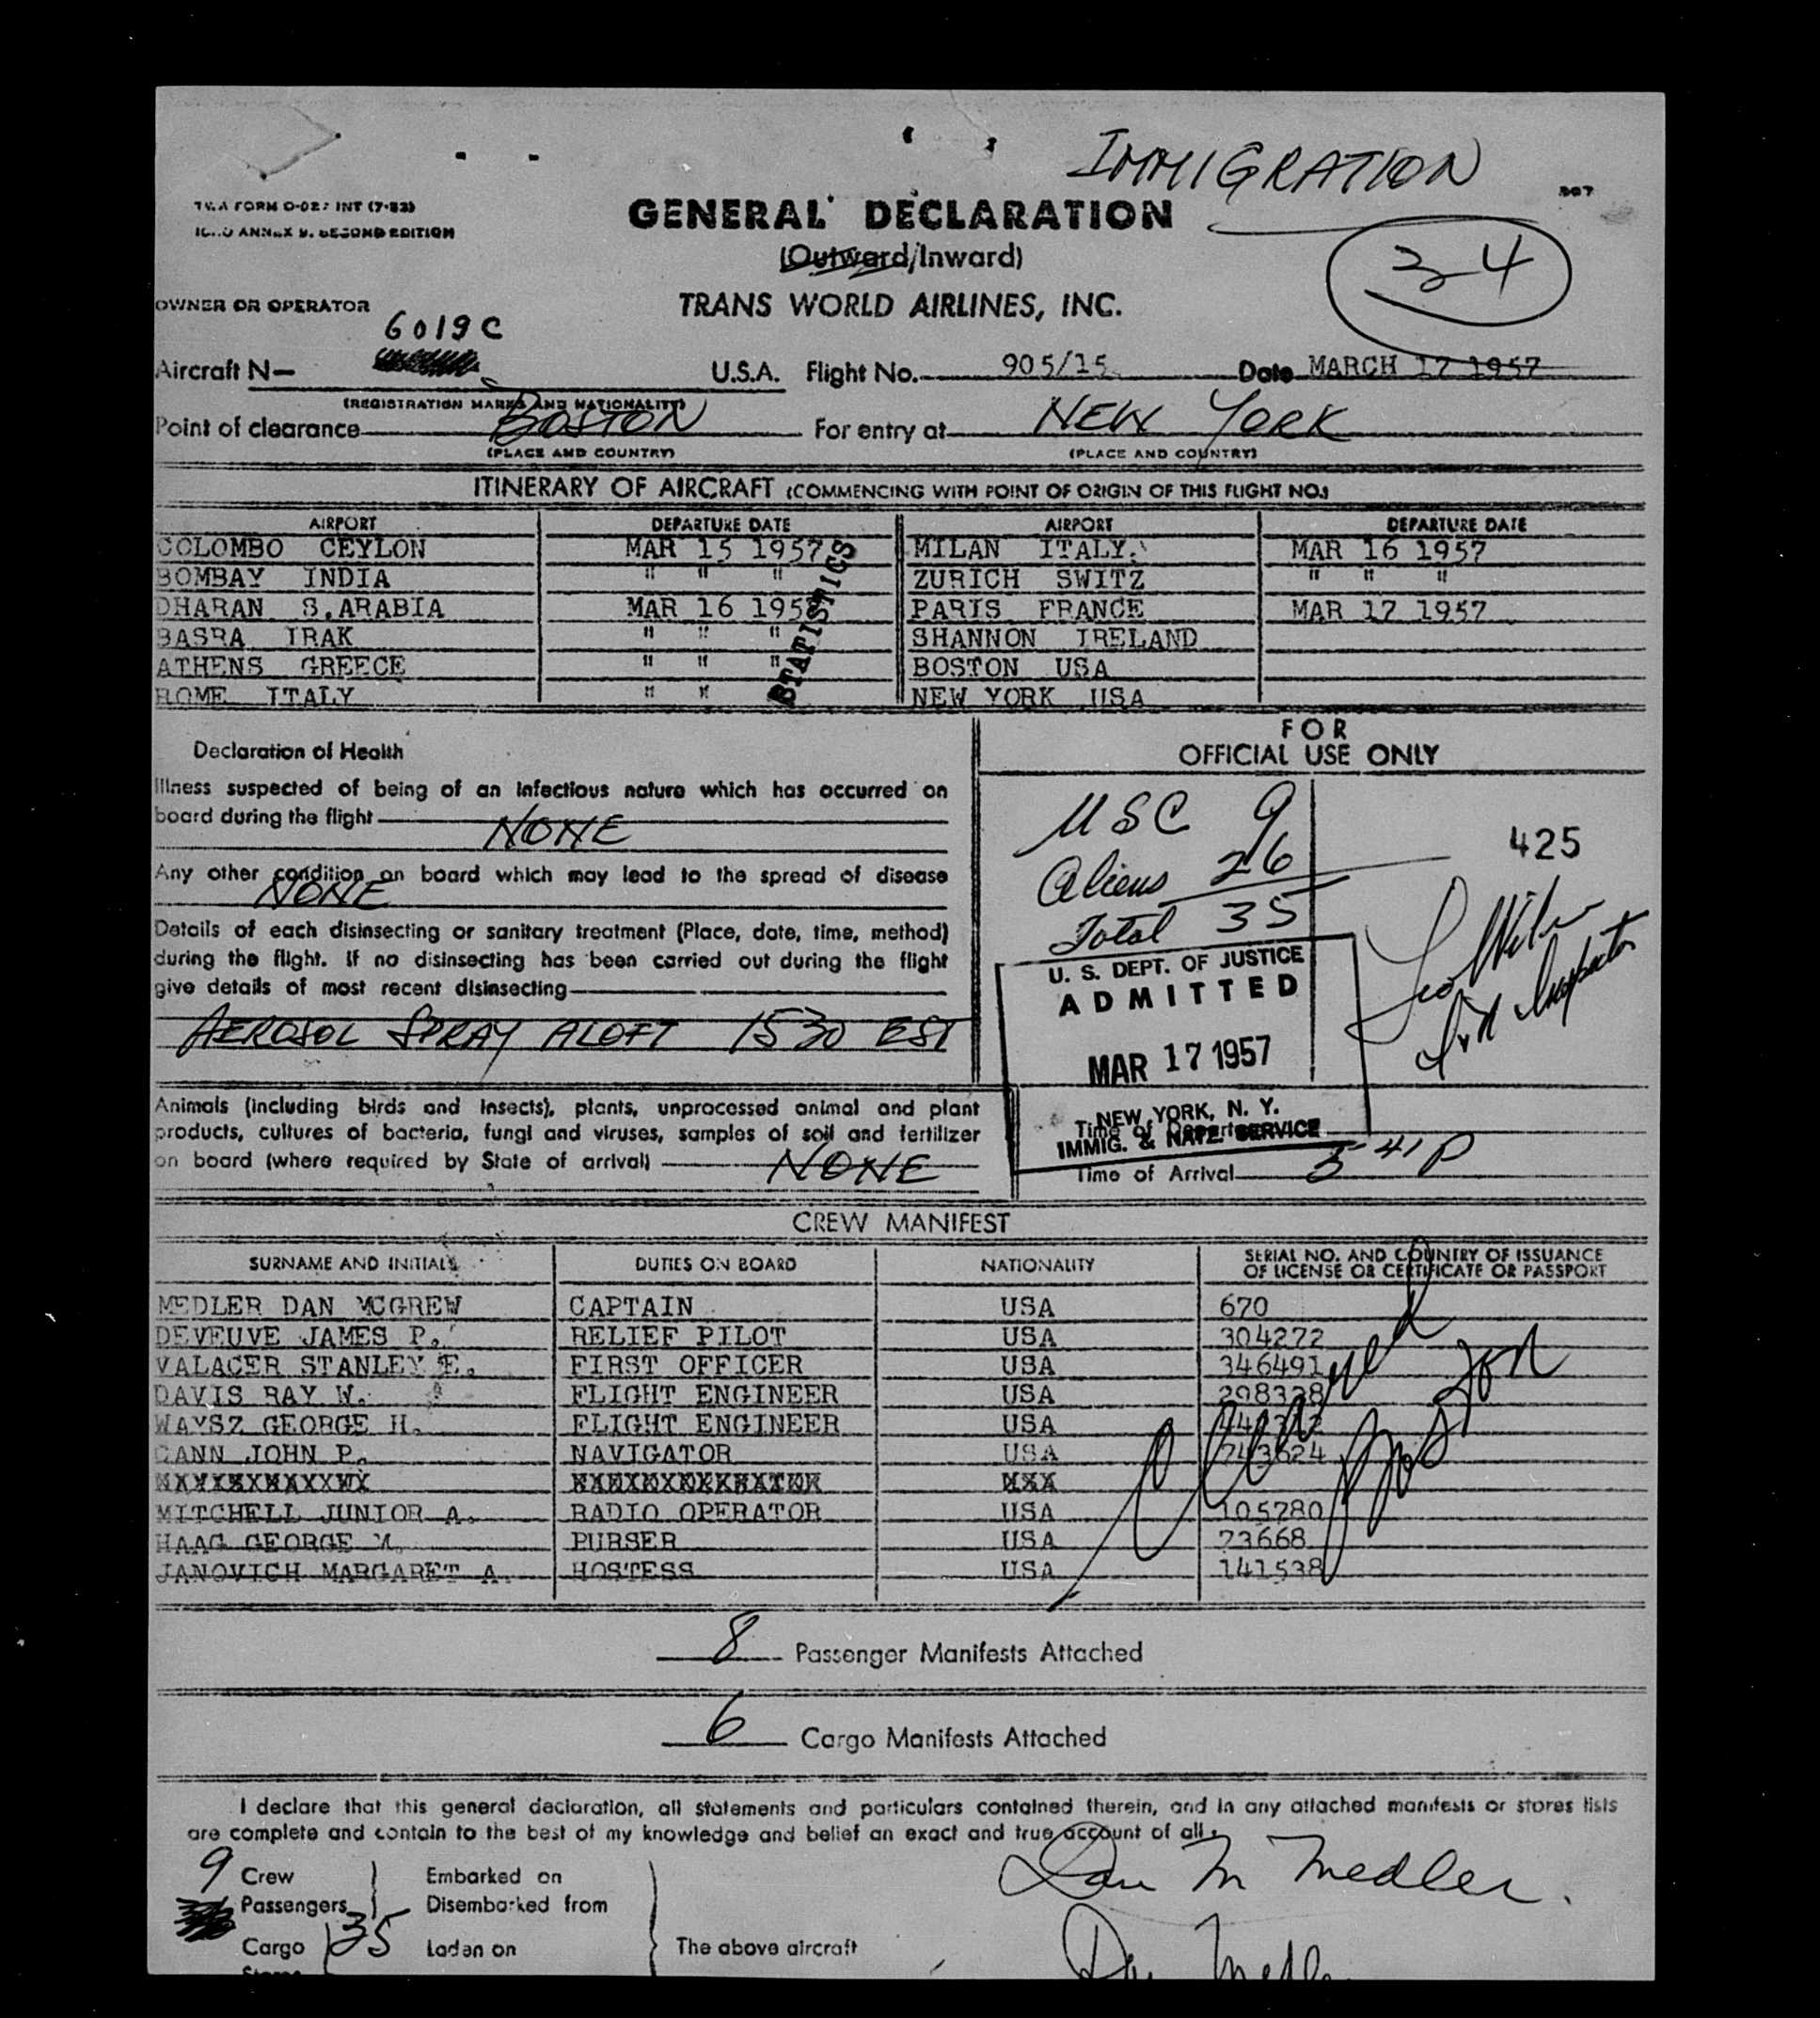 IMMIGRATION
TWA FORM O-027 INT (7-53)
ICAO ANNEX 9. SECOND EDITION
GENERAL DECLARATION
(Outward/Inward)
34
OWNER OR OPERATOR
TRANS WORLD AIRLINES, INC.
6019C
Aircraft N— U.S.A. Flight No. 905/15 Date MARCH 17 1957
(REGISTRATION MARKS AND NATIONALITY)
Point of clearance BOSTON For entry at NEW YORK
(PLACE AND COUNTRY) (PLACE AND COUNTRY)
ITINERARY OF AIRCRAFT (COMMENCING WITH POINT OF ORIGIN OF THIS FLIGHT NO.)
AIRPORT DEPARTURE DATE AIRPORT DEPARTURE DATE
COLOMBO CEYLON MAR 15 1957 MILAN ITALY. MAR 16 1957
BOMBAY INDIA " " " ZURICH SWITZ " " "
DHARAN S.ARABIA MAR 16 1957 PARIS FRANCE MAR 17 1957
BASRA IRAK " " " SHANNON IRELAND
ATHENS GREECE " " " BOSTON USA
ROME ITALY " " NEW YORK USA
STATISTICS
Declaration of Health
Illness suspected of being of an infectious nature which has occurred on
board during the flight NONE
Any other condition on board which may lead to the spread of disease
NONE
Details of each disinsecting or sanitary treatment (Place, date, time, method)
during the flight. If no disinsecting has been carried out during the flight
give details of most recent disinsecting
AEROSOL SPRAY ALOFT 1530 EST
Animals (including birds and insects), plants, unprocessed animal and plant
products, cultures of bacteria, fungi and viruses, samples of soil and fertilizer
on board (where required by State of arrival) NONE
FOR
OFFICIAL USE ONLY
USC 9
Aliens 26
Total 35
425
U. S. DEPT. OF JUSTICE
ADMITTED
MAR 17 1957
NEW YORK, N. Y.
IMMIG. & NATZ. SERVICE
Time of Arrival 5 41 P
CREW MANIFEST
SURNAME AND INITIALS DUTIES ON BOARD NATIONALITY SERIAL NO. AND COUNTRY OF ISSUANCE
OF LICENSE OR CERTIFICATE OR PASSPORT
MEDLER DAN MCGREW CAPTAIN USA 670
DEVEUVE JAMES P. RELIEF PILOT USA 304272
VALACER STANLEY E. FIRST OFFICER USA 346491
DAVIS RAY W. FLIGHT ENGINEER USA
WAYSZ GEORGE H. FLIGHT ENGINEER USA
CANN JOHN P. NAVIGATOR USA 743624
MITCHELL JUNIOR A. RADIO OPERATOR USA 105780
HAAG GEORGE M. PURSER USA 73668
JANOVICH MARGARET A. HOSTESS USA 141538
Cleared Boston
8 Passenger Manifests Attached
6 Cargo Manifests Attached
I declare that this general declaration, all statements and particulars contained therein, and in any attached manifests or stores lists
are complete and contain to the best of my knowledge and belief an exact and true account of all
9 Crew Embarked on
Passengers Disembarked from
35 Cargo Laden on The above aircraft
Dan M Medler.